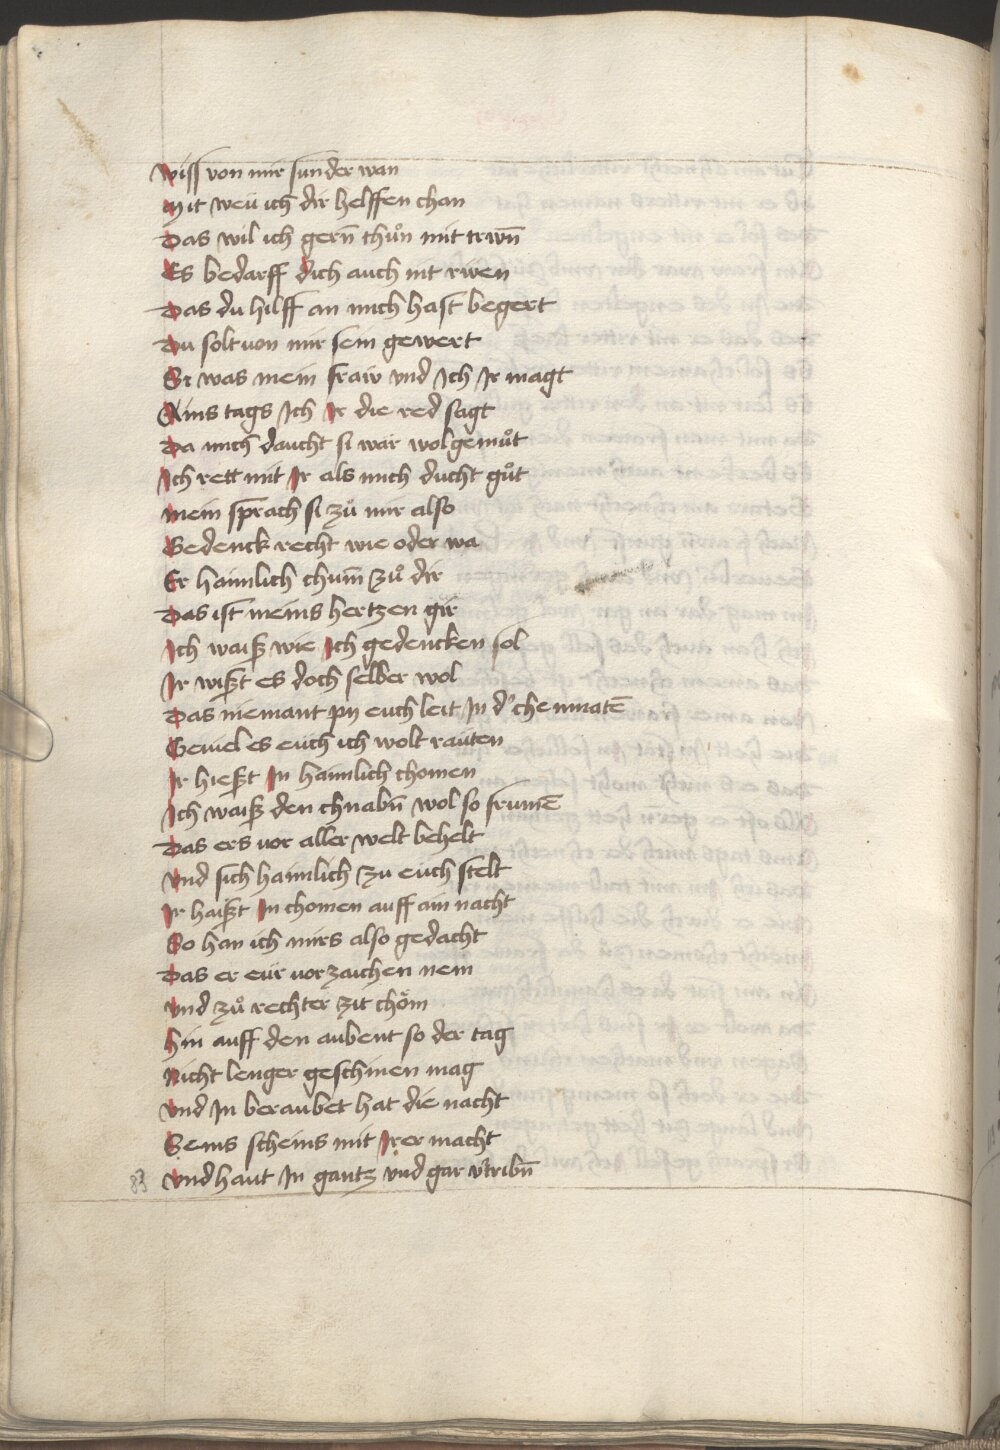 Wiss von mir sunder wan
Mit weu ich dir helffen chan
Das wil ich gern̄ thůn mit trwn̄
Es bedarff dich auch nit riwen
Das du hilff an mich hast begert
Du solt von mir sein gewert
Si was mein fraiw vnd Ich Ir magt
Ains tags Ich Ir die red sagt
Da mich daucht si wär wolgemůt
Ich rett mit Ir als mich ducht gůt
Mein sprach si zů mir also
Gedenck recht wie oder wa
Er haimlich chum̄ zů dir
Das ist meins hertzen gir
Ich waiß wie Ich gedencken sol
Ir wißt es doch selber wol
Das niemant pey euch leit In d' chemnatē
Geuiel es euch ich wolt rauten
Ir hießt In haimlich chomen
Ich waiß den chnabn̄ wol so frumē
Das ers vor aller welt behelt
Vnd sich haimlich zu euch stelt
Ir haißt In chomen auff ain nacht
So han ich mirs also gedacht
Das er eur vorzaichen nem
Vnd zů rechter zit chöm
Hin auff den aubent so der tag
Nicht lenger geschinen mag
Vnd In beraubet hat die nacht
Seins scheins mit Irer macht
83 Vnd haut In gantz vnd gar v'tribn̄